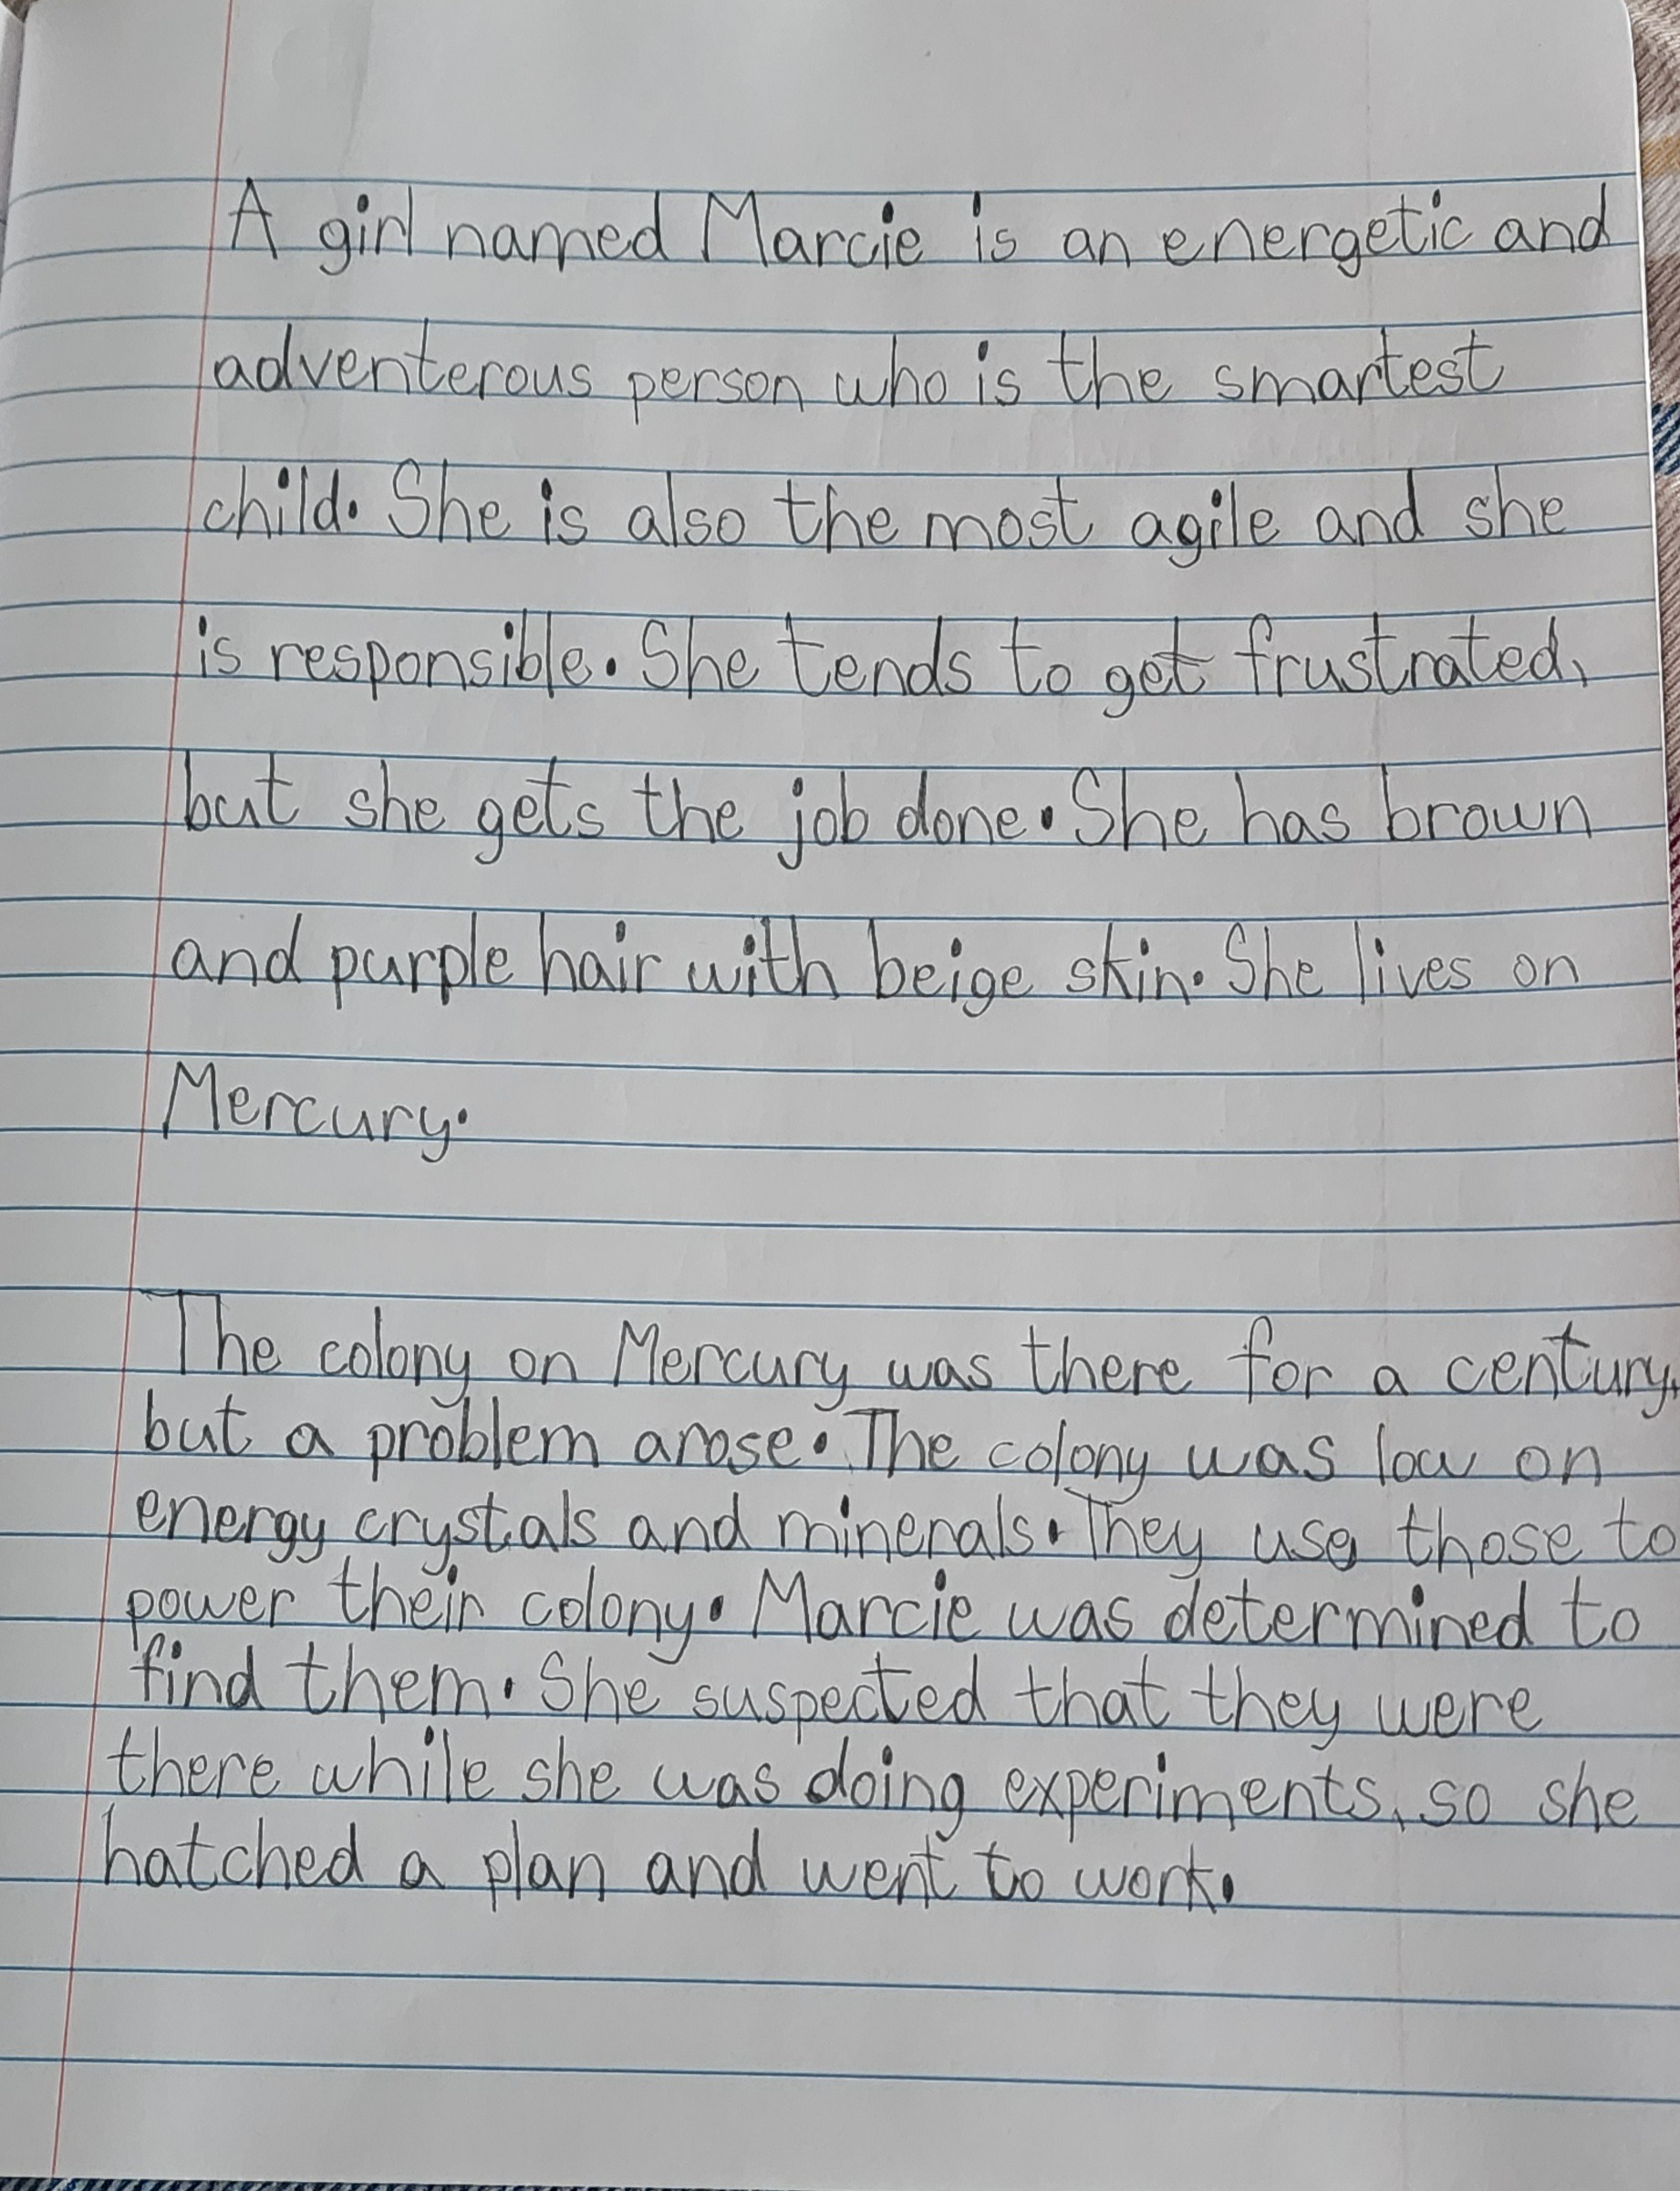 A girl named Marcie is an energetic and
adventerous person who is the smartest
child. She is also the most agile and she
is responsible. She tends to get frustrated,
but she gets the job done. She has brown
and purple hair with beige skin. She lives on
Mercury.
The colony on Mercury was there for a century,
but a problem arose. The colony was low on
energy crystals and minerals. They use those to
power their colony. Marcie was determined to
find them. She suspected that they were
there while she was doing experiments, so she
hatched a plan and went to work.